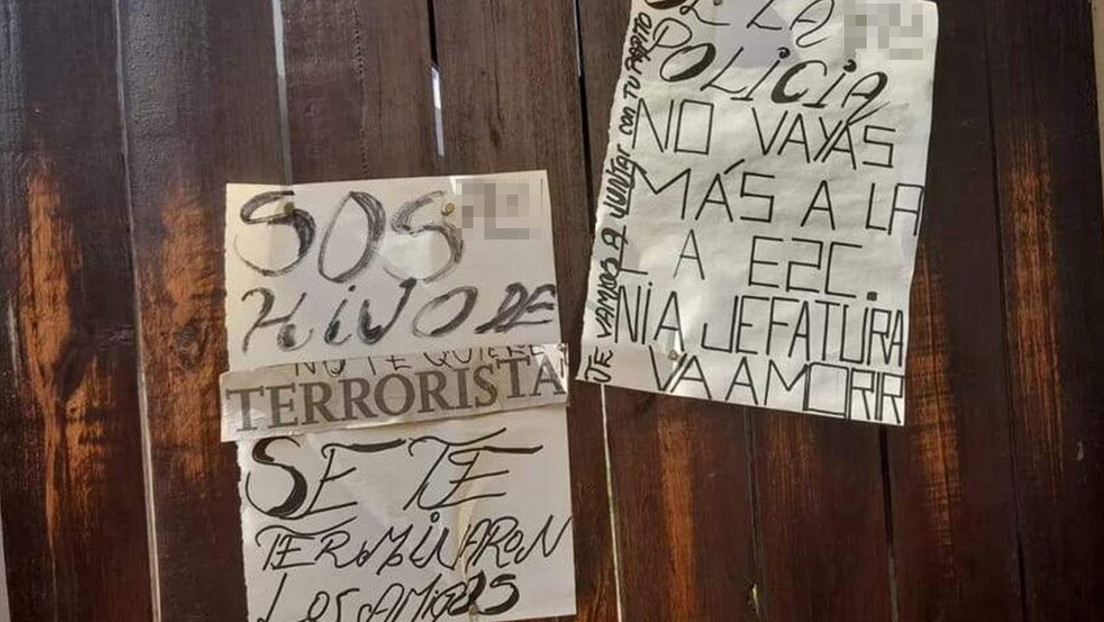 SOS
HIJO DE
NO TE QUIERE
TERRORISTA
SE TE
TERMINARON
LOS AMIGOS
DE LA
POLICIA
NO VAYAS
MÁS A LA
A ESC.
NI A JEFATURA
VA A MORIR
TE VAMOS A JUNTAR con TU PAPITO